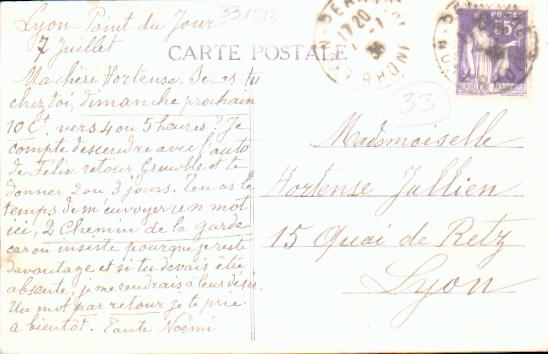 Lyon-Point du Jour
7 Juillet
331513
CARTE POSTALE
Ma chère Hortense. Seras tu
chez toi, dimanche prochain
10 Ct. vers 4 ou 5 heures? Je
compte descendre avec l'auto
de Félix retour Grenoble et te
donner 2 ou 3 jours. Tu as le
temps de m'envoyer un mot
ici, 2 Chemin de la garde
car on insiste pour que je reste
davantage et si tu devais être
absente, je me rendrais à leurs désirs.
Un mot par retour je te prie.
à bientôt. Tante Noémi
33
Mademoiselle
Hortense Jullien
15 Quai de Retz
Lyon
POSTES
RHONE